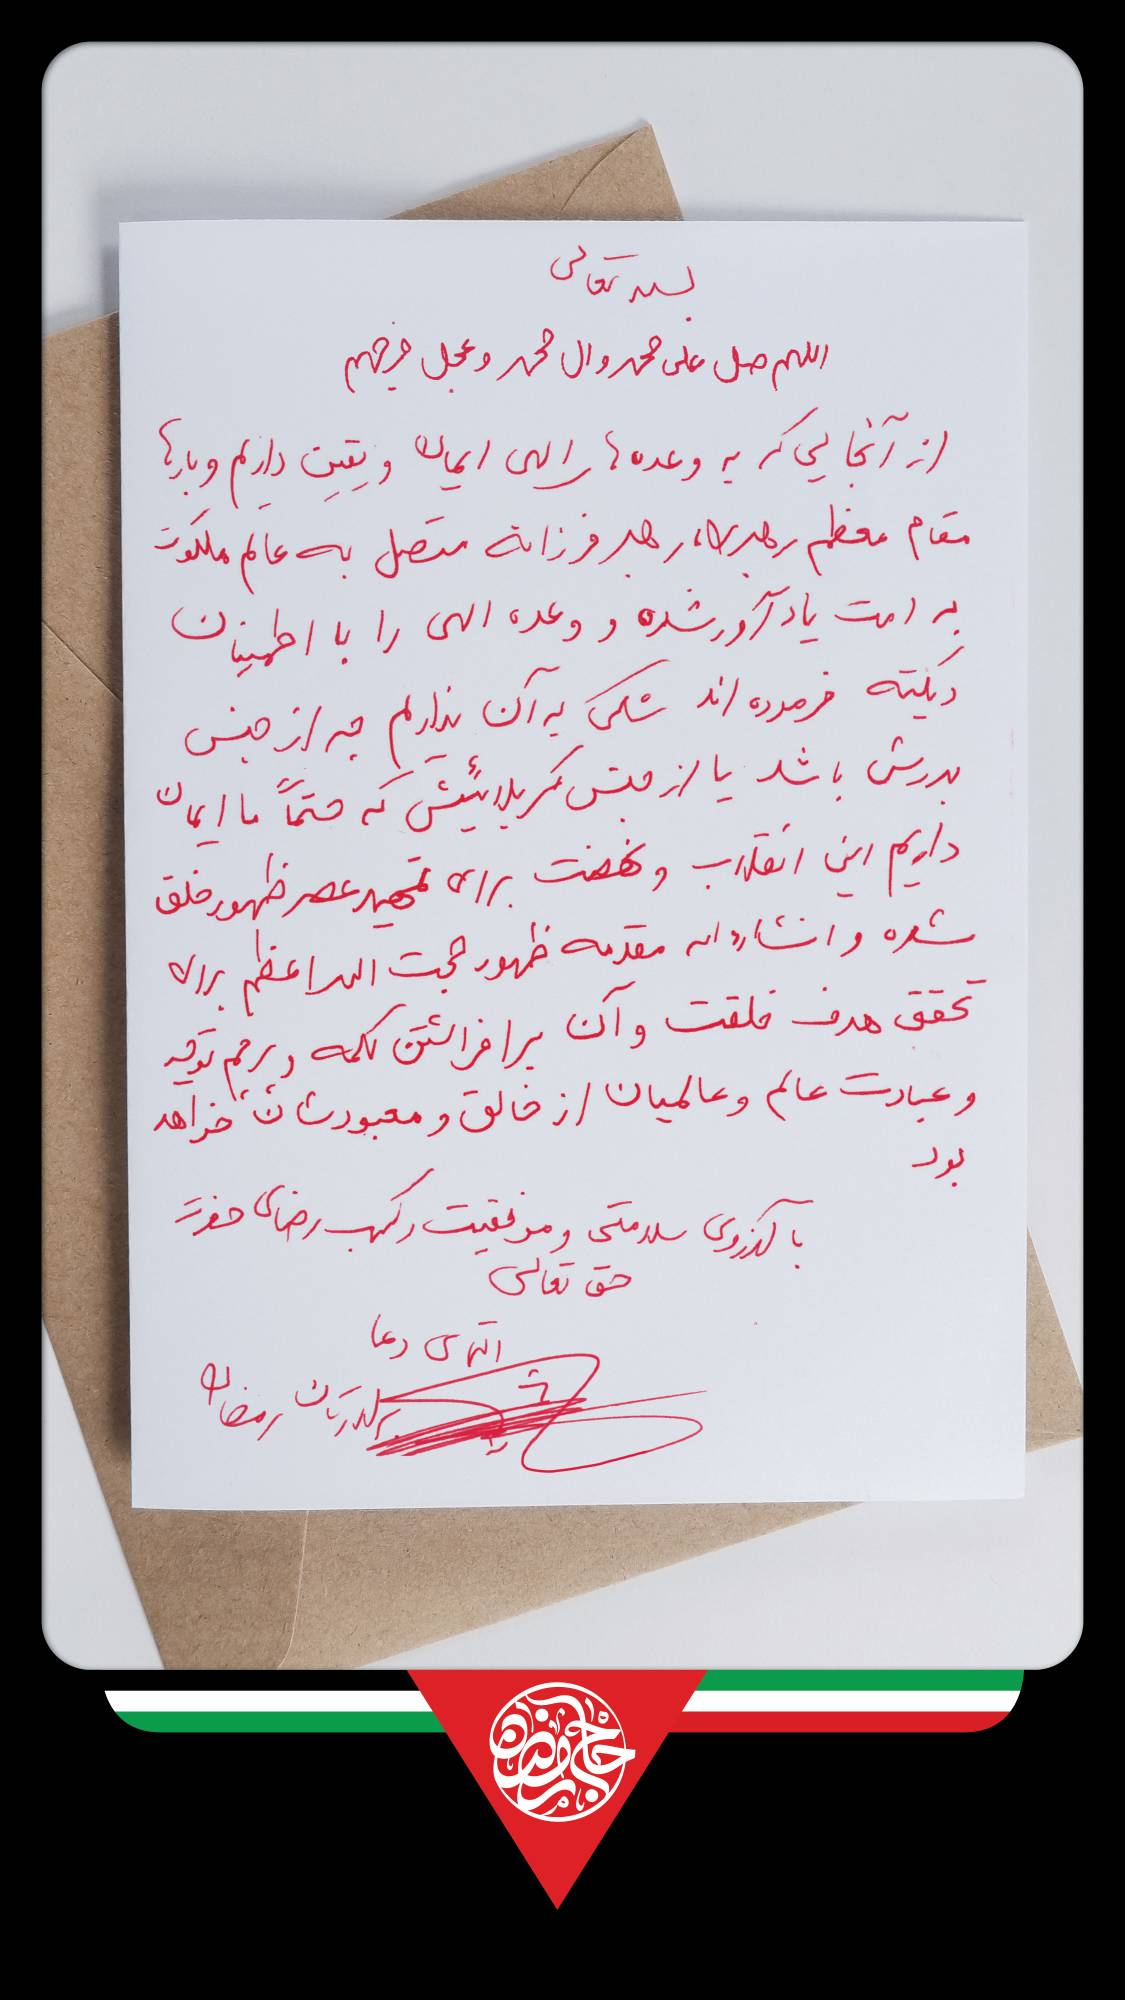 بسمه تعالی
اللهم صل علی محمد و ال محمد و عجل فرجهم
از آنجایی که به وعده های الهی ایمان و یقین داریم و بارها
مقام معظم رهبری، رهبر فرزانه متصل به عالم ملکوت
به امت یادآور شده و وعده الهی را با اطمینان
دیکته فرموده اند شکی به آن نداریم چه از جنس
بدرش باشد یا از جنس کربلائیش که حتماً ما ایمان
داریم این انقلاب و نهضت برای تمهید عصر ظهور خلق
شده و انشاءاله مقدمه ظهور حجت الله اعظم برای
تحقق هدف خلقت و آن برافراشتن کلمه و پرچم توحید
و عبادت عالم و عالمیان از خالق و معبودشان خواهد
بود
با آرزوی سلامتی و موفقیت و کسب رضای حضرت
حق تعالی
التماس دعا
برادرتان رمضان